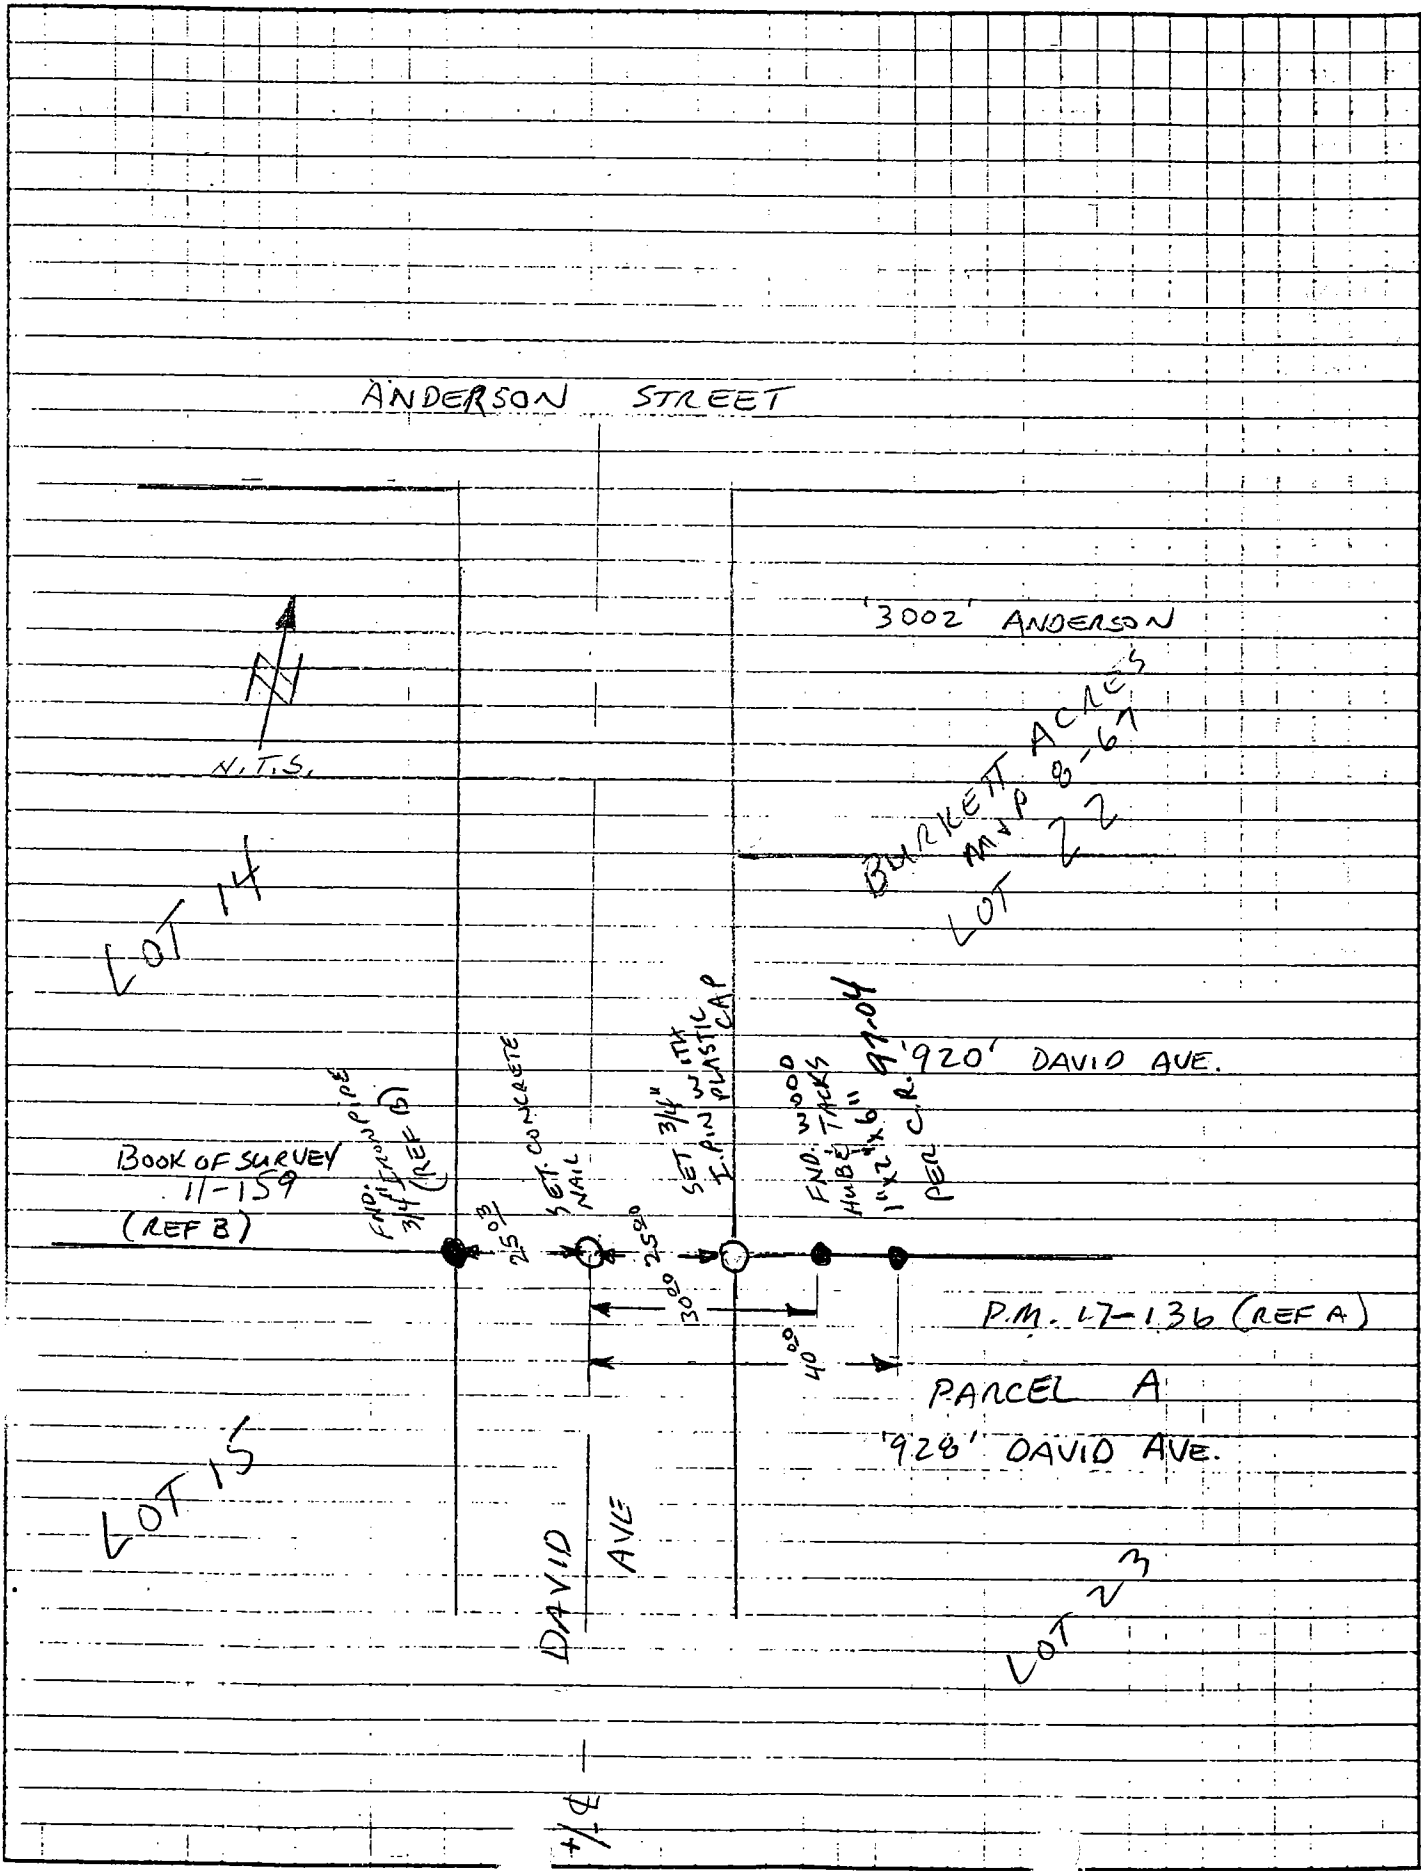 ANDERSON STREET
'3002' ANDERSON
N.T.S.
BURKETT ACRES
8-67
LOT 22
LOT 14
'920' DAVID AVE.
BOOK OF SURVEY
11-159
(REF B)
FND.
3/4" IRON PIPE
(REF B)
25 03
SET. CONCRETE
NAIL
25 00
SET 3/4"
I. PIN WITH
PLASTIC CAP
FND. WOOD
HUB & TACKS
1"x2"x6"
PER C.R. 97-04
30 00
40 00
P.M. 17-136 (REF A)
PARCEL A
'928' DAVID AVE.
LOT 15
DAVID
AVE
LOT 23
+/- ℄